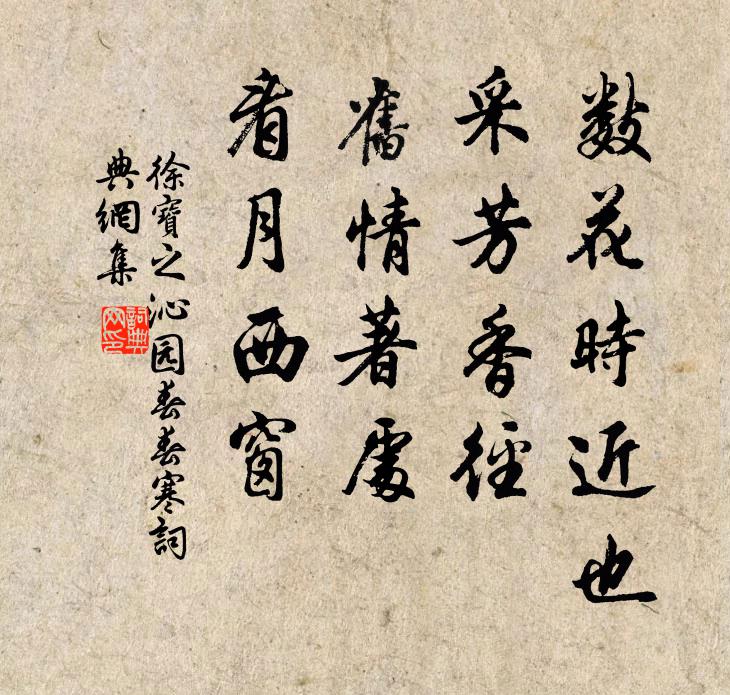 数花時近也
采芳香徑
舊情著處
看月西窗
徐寶之沁园春春寒詞
典網集
詞典
网印